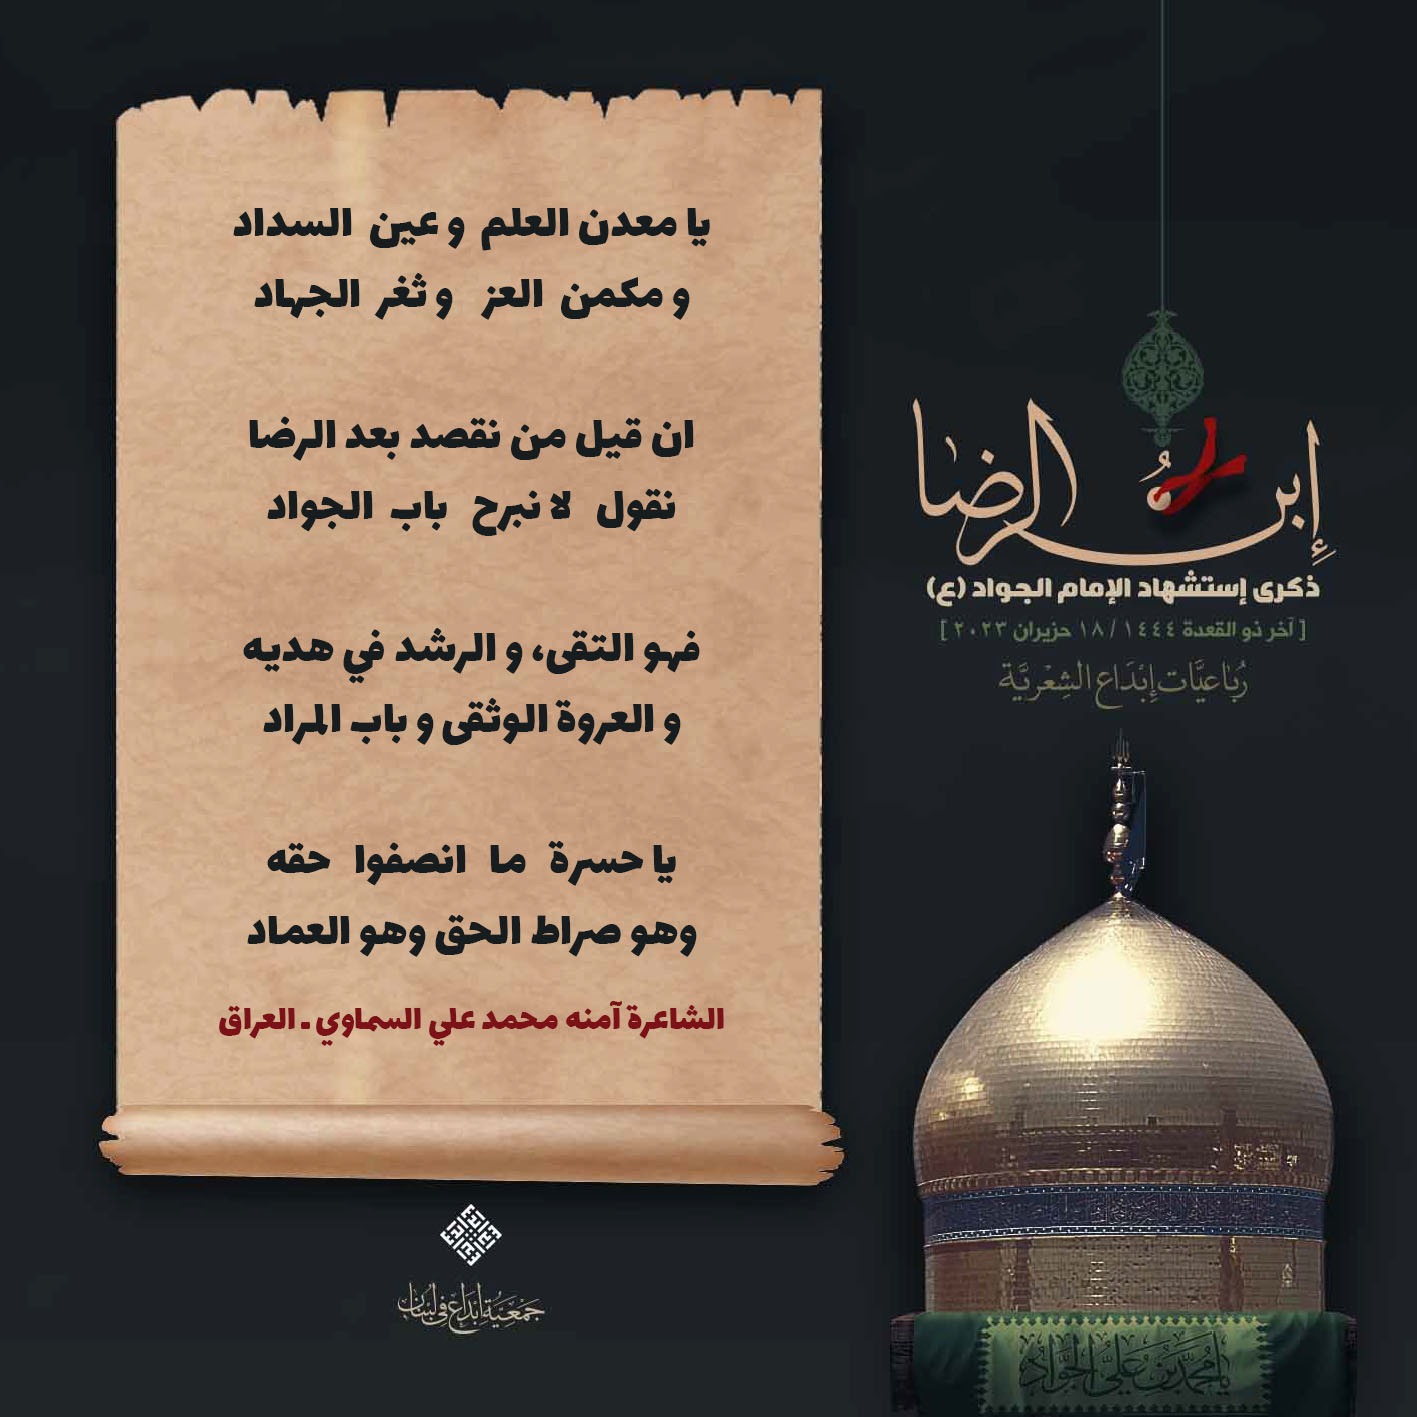 يا معدن العلم و عين السداد
و مكمن العز و ثغر الجهاد
ان قيل من نقصد بعد الرضا
نقول لا نبرح باب الجواد
فهو التقى، و الرشد في هديه
و العروة الوثقى و باب المراد
يا حسرة ما انصفوا حقه
وهو صراط الحق وهو العماد
الشاعرة آمنه محمد علي السماوي - العراق
إبن الرضا
ذكرى إستشهاد الإمام الجواد (ع)
[ آخر ذو القعدة ١٤٤٤ / ١٨ حزيران ٢٠٢٣ ]
رُبَاعيَّات إبْدَاع الشِعْريَّة
جَمْعِيَّة إبْدَاع في لبنان
يا مُحمَّد بن عَليّ الجَوَادُ